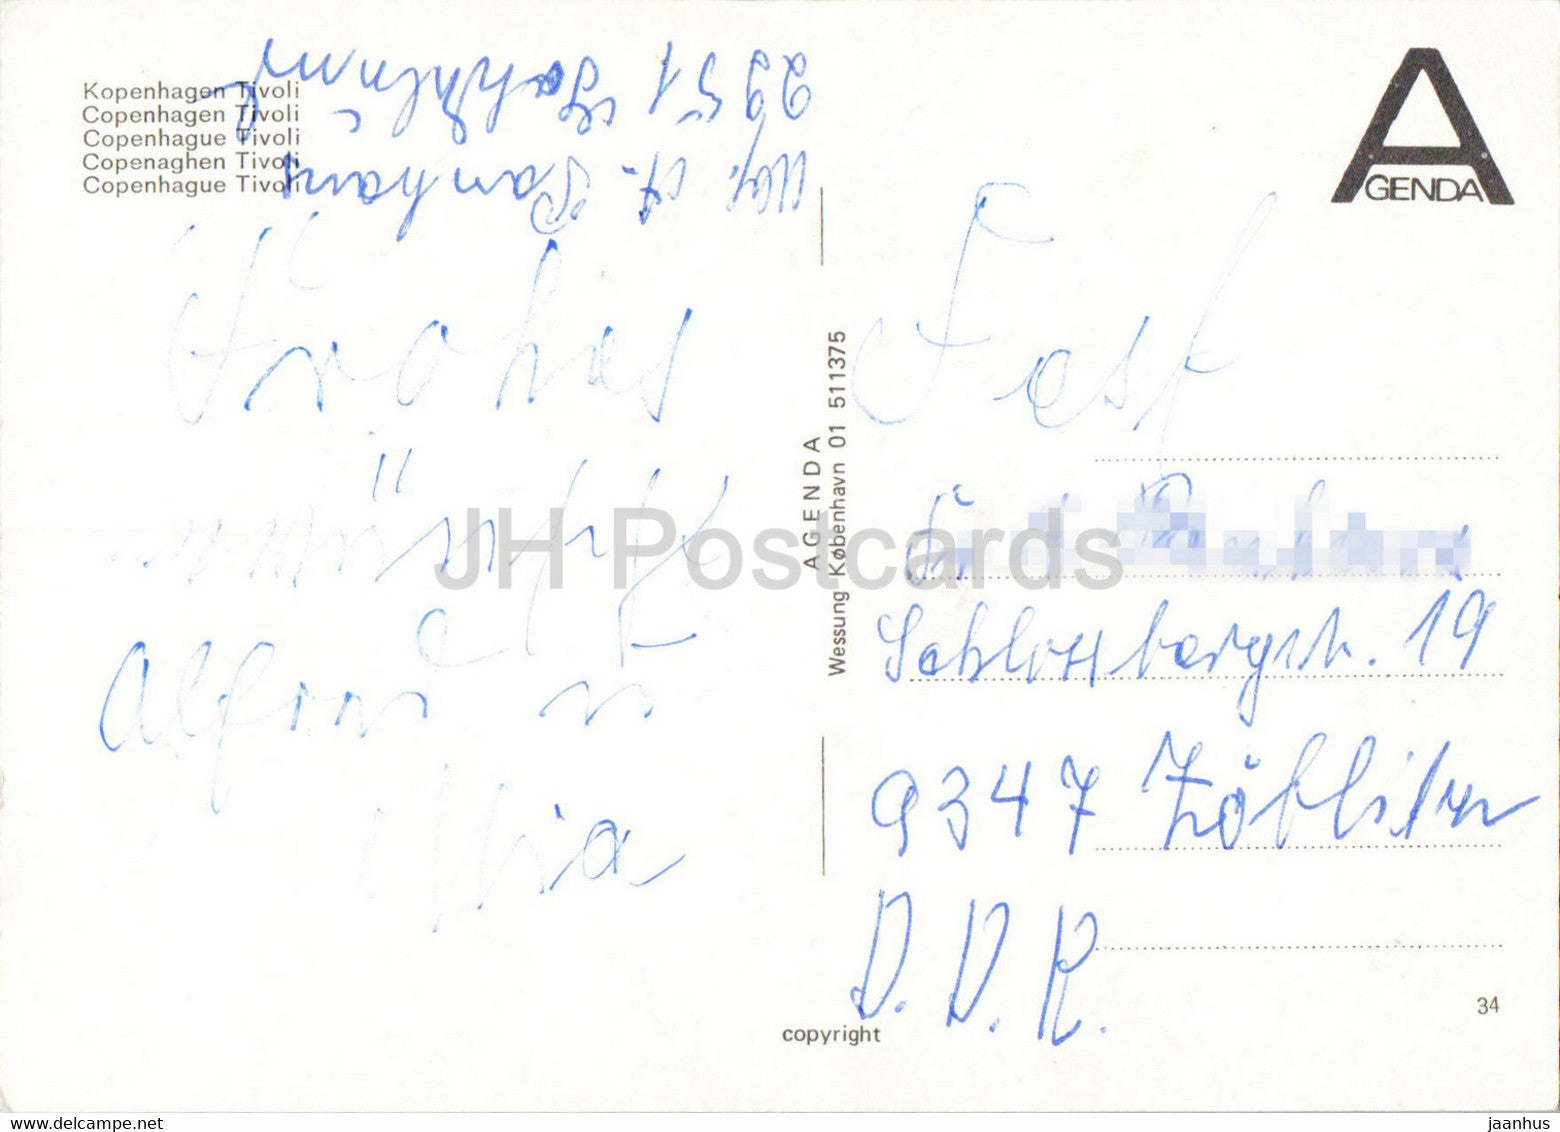 Kopenhagen Tivoli
Copenhagen Tivoli
Copenhague Tivoli
Copenaghen Tivoli
Copenhague Tivoli
2951
Frohes
Fest
wünscht
Alfons u
AGENDA
Wessung København 01 511375
AGENDA
Schlossbergstr. 19
9347 Zöblitz
D.D.R.
34
copyright
JH Postcards
jaanhus